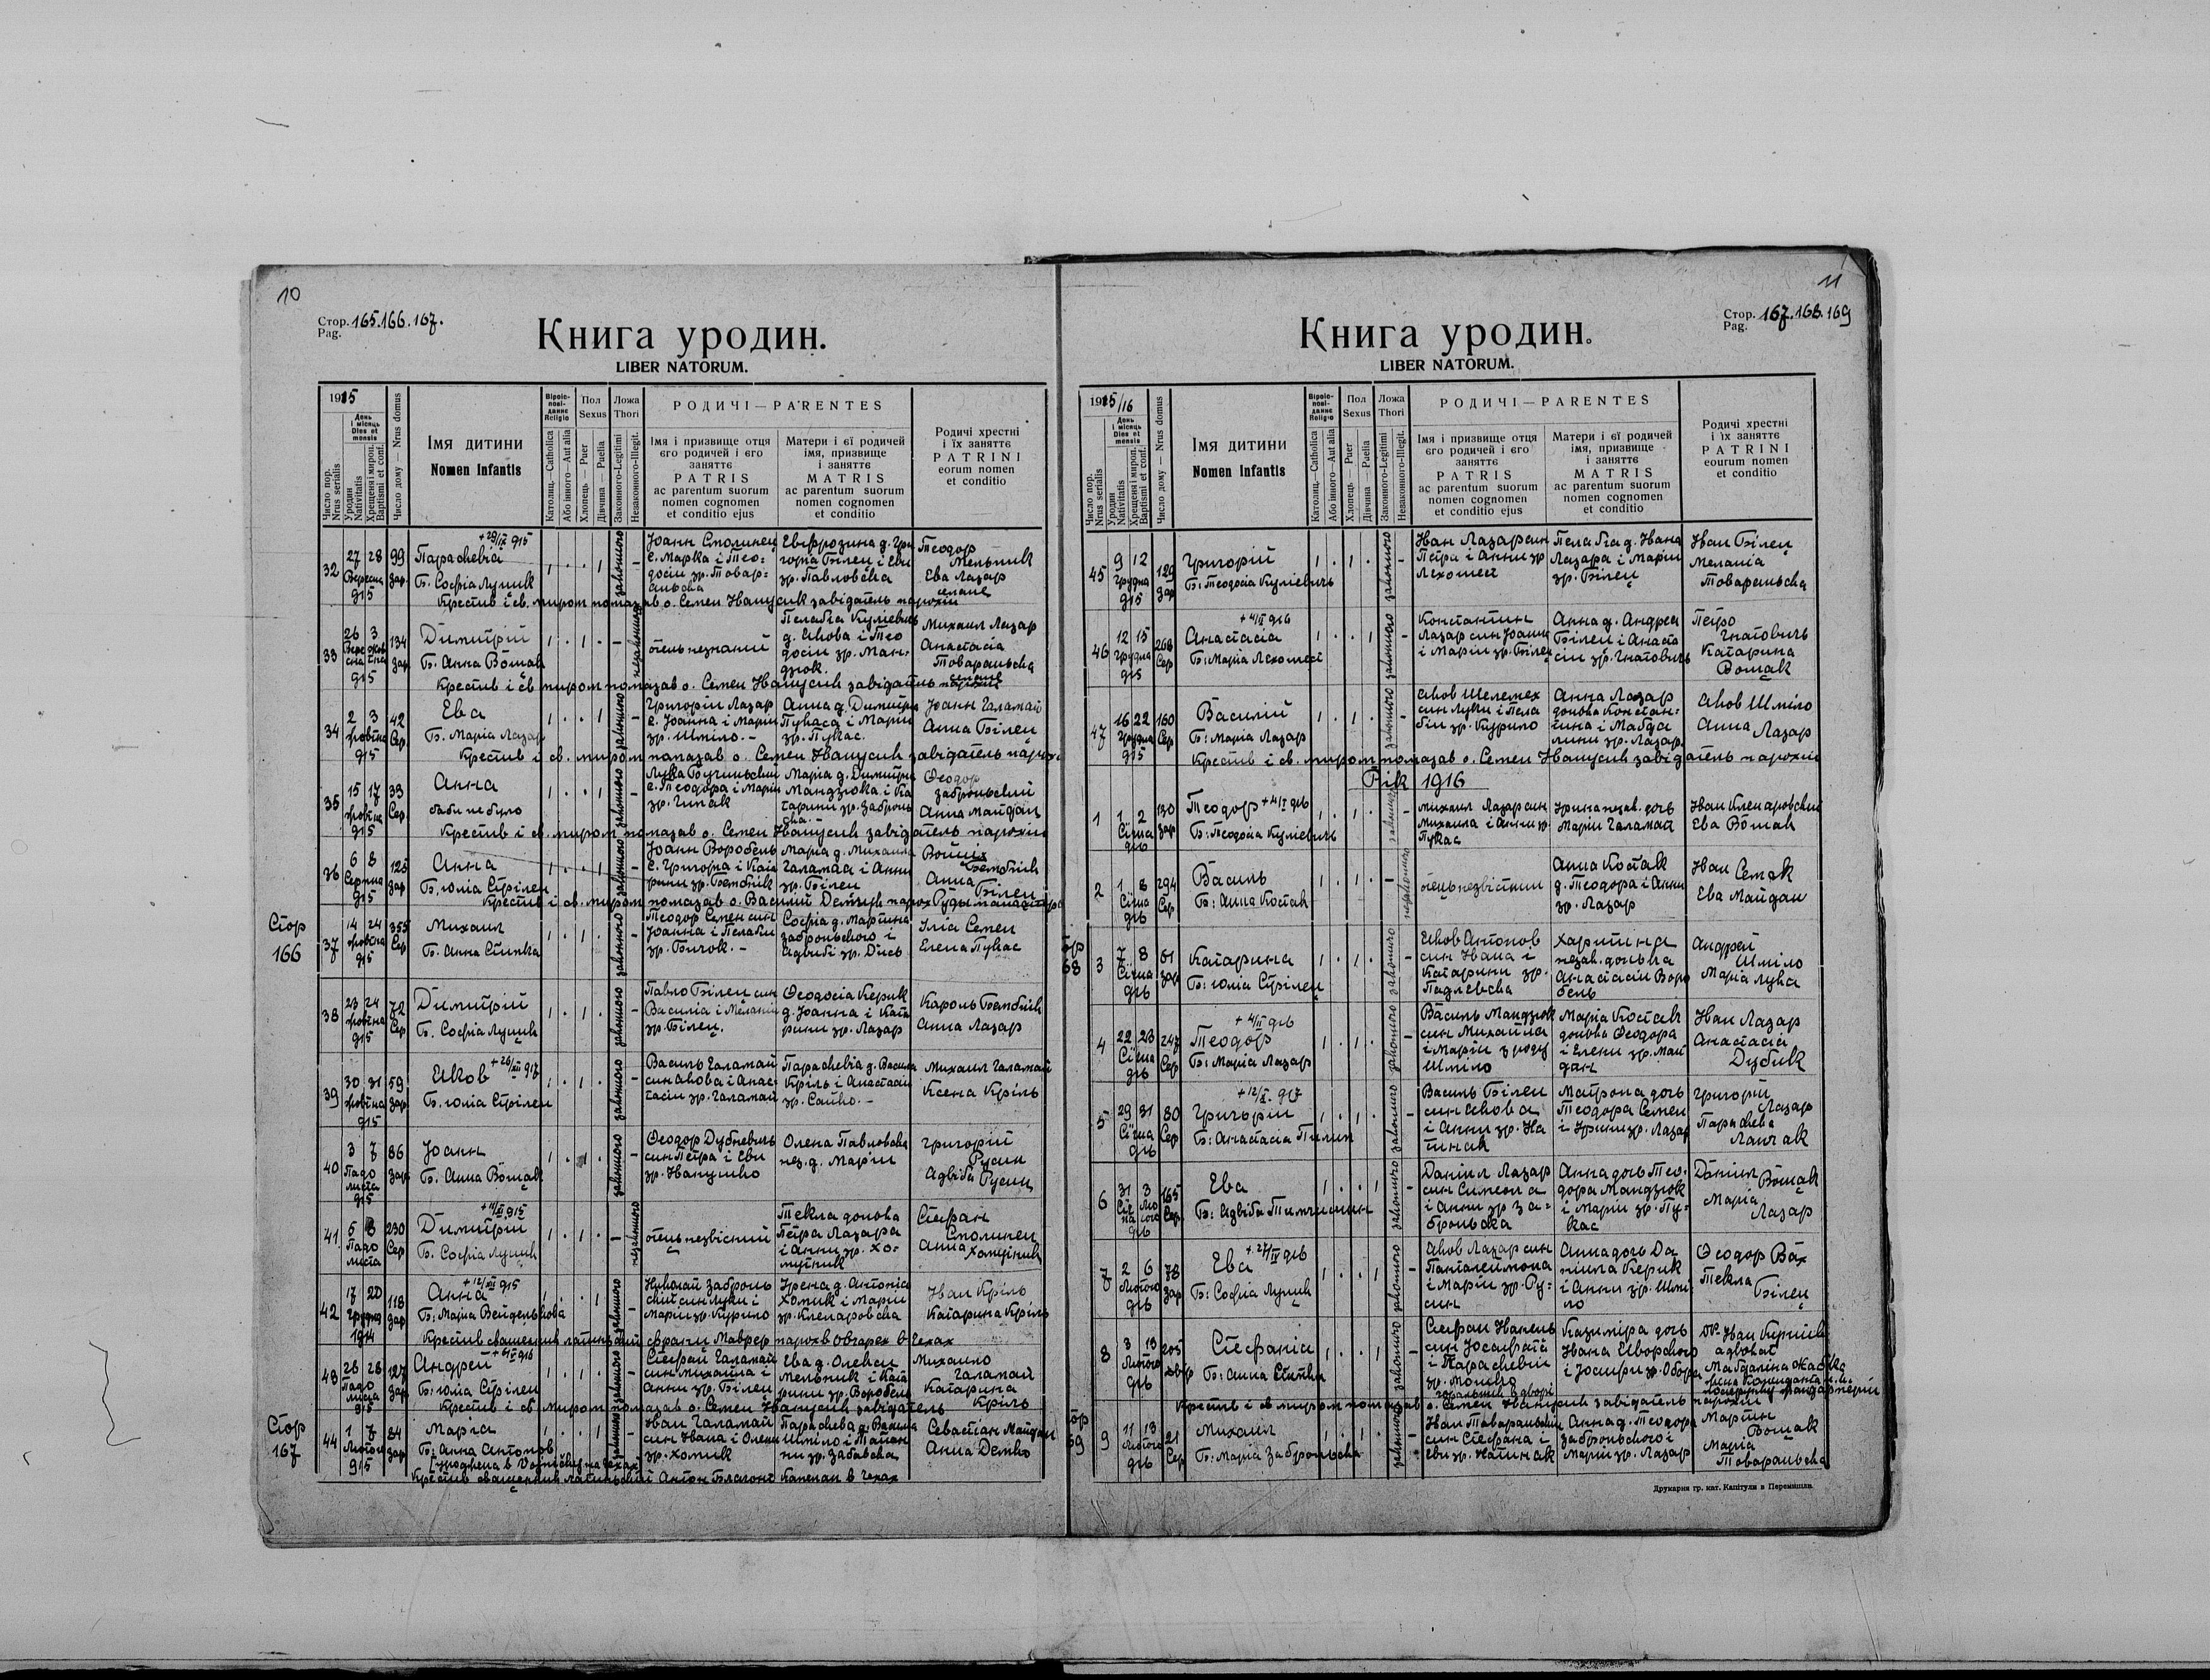 10
Стор. 165.166.167.
Pag.
Книга уродин.
LIBER NATORUM.
1915
Число пор.
Nrus serialis
День
і місяць
Dies et
mensis
Уродин
Nativitatis
Хрещеня і мироп.
Baptismi et conf.
Число дому — Nrus domus
Імя дитини
Nomen Infantis
Віроіс-
пові-
данне
Religio
Католиц.—Catholica
Або інного—Aut alia
Пол
Sexus
Хлопець — Puer
Дівчина — Puella
Ложа
Thori
Законного-Legitimi
Незаконного-Illegit.
РОДИЧІ — PARENTES
Імя і призвище отця
єго родичей і єго
занятте
PATRIS
ac parentum suorum
nomen cognomen
et conditio ejus
Матери і єї родичей
імя, призвище
і занятте
MATRIS
ac parentum suorum
nomen cognomen
et conditio
Родичі хрестні
і їх занятте
PATRINI
eorum nomen
et conditio
32
27 28
Вересня
915
99
зар.
+29/IX 915
Параскевія
Б. Софія Луцик
законного
Йоанн Смолинец
с. Марка і Тео-
досіи зр. Товар-
ньска
Евфрозина д. Гри
горія Білец і Еви
зр. Павловска
Теодор
Мельник
Ева Лазар
селяне
Крестив і св. миром помазав о. Семен Іванусик завідатель парохіи
33
26 3
134
зар
915
Димитрій
Б. Анна Вошак
незаконного
отець незнаний
Пелагія Кулієвич
д. Якова і Тео
досіи зр. Ман-
дзюк.
Михаил Лазар
Анастасія
Товарньска
Крестив і св миром помазав о. Семен Іванусик завідатель парохіи
34
2 3
Жовтня
915
42
Сер.
Ева
Б. Марія Лазар
законного
Григорій Лазар
с. Йоанна і Маріи
зр. Шміло.-
Анна д. Димитрія
Пукаса і Маріи
зр. Пукас.
Йоанн Галамай
Анна Білец
Крестив і св. миром помазав о. Семен Іванусик завідатель парохіи
35
15 17
Жовтня
915
33
Сер.
Анна
баби не було
законного
Лука Бучиньский
с. Теодора і Маріи
зр. Гнпак
Марія д. Димитрія
Мандзюка і Ка
тарини зр. Забронь
ска.-
Феодор
Заброньский
Анна Майдан
Крестив і св. миром помазав о. Семен Іванусик завідатель парохіи
36
6 8
Серпня
915
125
зар
Анна
Б. Юлія Стрілец
законного
Йоанн Воробель
с. Григорія і Ката
рини зр. Бембник
Марія д. Михаила
Галамая і Анни
зр. Білец
Войціх
Бембник
Анна
Білец
Крестив і св. миром помазав о. Василий Демчук парох Руды
Стор
166
37
14 24
Жовтня
915
355
Сер
Михаил
Б. Анна Стипка
законного
Теодор Семен син
Йоанна і Пелагіи
зр. Бичок.-
Софія д. Мартина
Заброньского і
Ядвиги зр. Дись
Ілія Семен
Елена Пукас
38
23 24
Жовтня
915
72
Сер
Димитрій
Б. Софія Луцик
законного
Павло Білец син
Василія і Меланіи
зр. Білец.
Феодосія Керик
д. Йоанна і Ката
рини зр. Лазар
Кароль Бембник
Анна Лазар
39
30 31
Жовтня
915
59
зар
Яков +26/XII 917
Б. Юлія Стрілец
законного
Василь Галамай
син Якова і Анас-
тасіи зр. Галамай
Параскевія д. Василя
Кріль і Анастасіи
зр. Сайко.-
Михаил Галамай
Ксеня Кріль
40
3 7
Падо
листа
915
86
зар
Йоанн
Б. Анна Вошак
законного
Феодор Дубневич
син Петра і Еви
зр. Іванушко
Олена Павловска
нез. д. Маріи
Григорій
Русин
Ядвіга Русин
41
6 8
Падо
листа
230
Сер
Димитрій
Б. Софія Луцик
незаконного
отець незвісний
Текля донька
Петра Лазара
і Анни зр. Хо-
мутник
Стефан
Смолинец
Анна
Хомутник
42
17 20
Грудня
1914
118
зар
+12/XII 915
Анна
Б. Марія Вейдельнова
законного
Николай Забронь
ский син Луки і
Маріи зр. Курило
Ірена д. Антонія
Хомик і Маріи
зр. Клепаровска
Іван Кріль
Катарина Кріль
Крестив священик латиньский Франц Маврер парох в Овчарех в Чехах
43
26 28
Падо
листа
915
127
зар
Андрей
Б. Юлія Стрілец
законного
Стефан Галамай
син Михаила і
Анни зр. Білец
Ева д. Олекси
Мельник і Ката
рини зр. Воробель
Михайло
Галамай
Катарина
Кріль
Крестив і св миром помазав о. Семен Іванусик завідатель
Стор
167
44
1 7
Лютого
915
84
зар
Марія
Б. Анна Антонов
законного
Іван Галамай
син Івана і Олени
зр. Хомик
Параскева д. Василя
Шміло і Татян
ни зр. Забавска
Севастіан Майдан
Анна Демко
Крестив священик латиньский Антон Благонь Капелан в Чехах
11
Стор. 167.168.169
Pag.
Книга уродин.
LIBER NATORUM.
1915/16
Число пор.
Nrus serialis
День
і місяць
Dies et
mensis
Уродин
Nativitatis
Хрещеня і мироп.
Baptismi et conf.
Число дому — Nrus domus
Імя дитини
Nomen Infantis
Віроіс-
пові-
данне
Religio
Католиц.—Catholica
Або інного—Aut alia
Пол
Sexus
Хлопець — Puer
Дівчина — Puella
Ложа
Thori
Законного-Legitimi
Незаконного-Illegit.
РОДИЧІ — PARENTES
Імя і призвище отця
єго родичей і єго
занятте
PATRIS
ac parentum suorum
nomen cognomen
et conditio ejus
Матери і єї родичей
імя, призвище
і занятте
MATRIS
ac parentum suorum
nomen cognomen
et conditio
Родичі хрестні
і їх занятте
PATRINI
eourum nomen
et conditio
45
9 12
Грудня
915
129
зар
Григорій
Б: Теодосія Кулієвич
законного
Іван Лазар син
Петра і Анни зр
Лехомест
Пелагія д. Івана
Лазара і Маріи
зр. Білец
Іван Білец
Меланія
Товарньска
46
12 15
Грудня
915
268
Сер
+4/II 916
Анастасія
Б: Марія Лехомест
законного
Константин
Лазар син Йоанна
і Маріи зр. Білец
Анна д. Андрея
Білец і Анаста
сіи зр. Гнатович
Петро
Гнатович
Катарина
Вошак
47
16 22
Грудня
915
160
Сер
Василій
Б: Марія Лазар
законного
Яков Шелемех
син Луки і Пела
гіи зр. Курило
Анна Лазар
донька Констан-
тина і Магда
лини зр. Лазар.
Яков Шміло
Анна Лазар
Крестив і св. миром помазав о. Семен Іванусик завідатель парохіи
Рік 1916
1
1 2
Січня
916
130
зар
Теодор +4/I 916
Б: Теодосія Кулієвич
законного
Михаил Лазар син
Михаила і Анни зр
Пукас
Ірина незак. доч
Маріи Галамай
Іван Клепаровский
Ева Вошак
2
1 8
Січня
916
294
Сер
Василь
Б: Анна Костак
незаконного
отець незвістний
Анна Костак
д. Теодора і Анни
зр. Лазар
Іван Семак
Ева Майдан
3
7 8
Січня
916
61
зар
Катарина
Б: Юлія Стрілец
законного
Яков Антонов
син Івана і
Катарини зр.
Падлевска
Харитина
незак. донька
Анастасіи Воро
бель
Андрей
Шміло
Марія Лука
4
22 23
Січня
916
247
Сер
+4/II 916
Теодор
Б: Марія Лазар
законного
Василь Мандзюк
син Михайла
і Маріи з роду
Шміло
Марія Костак
донька Феодора
і Елени зр. Май
дан
Іван Лазар
Анастасія
Дубик
5
29 31
Січня
916
80
Сер
+12/X 917
Григорій
Б: Анастасія Пилип
законного
Василь Білец
син Якова
і Анни зр. На
тинак
Матрона доч
Теодора Семен
і Ірини зр. Лазар
Григорій
Лазар
Параскева
Лончак
6
31 3
165
Сер.
Ева
Б: Ядвіга Тимчишин
законного
Даніил Лазар
син Симеона
і Анни зр За-
броньска
Анна доч Тео-
дора Мандзюк
і Маріи зр. Пу-
кас
Даніил Вошак
Марія
Лазар
7
2 6
Лютого
916
78
зар
Ева +27/II 916
Б: Софія Луцик
законного
Яков Лазар син
Панталеймона
і Маріи зр. Ру-
син
Анна доч Да
ниила Керик
і Анни зр. Шмі-
ло
Феодор Вах
Текля
Білец
8
3 13
Лютого
916
205
двор
Стефанія
Б: Анна Стипка
законного
Стефан Іванець
син Йосафата
і Параскевіи
зр. Монько
Казиміра доч
Івана Яворского
Dr Іван
адвокат
Крестив і св миром помазав о. Семен Іванусик завідатель парохіи
9
11 13
Лютого
916
21
Сер
Михаил
Б: Марія Заброньска
законного
Іван Товарньский
син Стефана і
Еви зр. Натинак
Анна д. Теодора
Заброньского і
Маріи зр. Лазар
Мартин
Вошак
Марія
Товарньска
Друкарня гр. кат. Капітули в Перемишли.